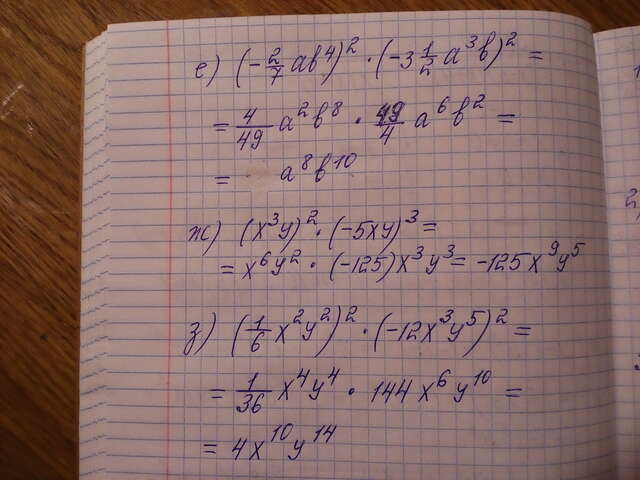 е) (-2/7 ab⁴)² · (-3 1/2 a³b)² =
= 4/49 a²b⁸ · 49/4 a⁶b² =
= a⁸b¹⁰
ж) (x³y)² · (-5xy)³ =
= x⁶y² · (-125)x³y³ = -125x⁹y⁵
з) (1/6 x²y²)² · (-12x³y⁵)² =
= 1/36 x⁴y⁴ · 144x⁶y¹⁰ =
= 4x¹⁰y¹⁴